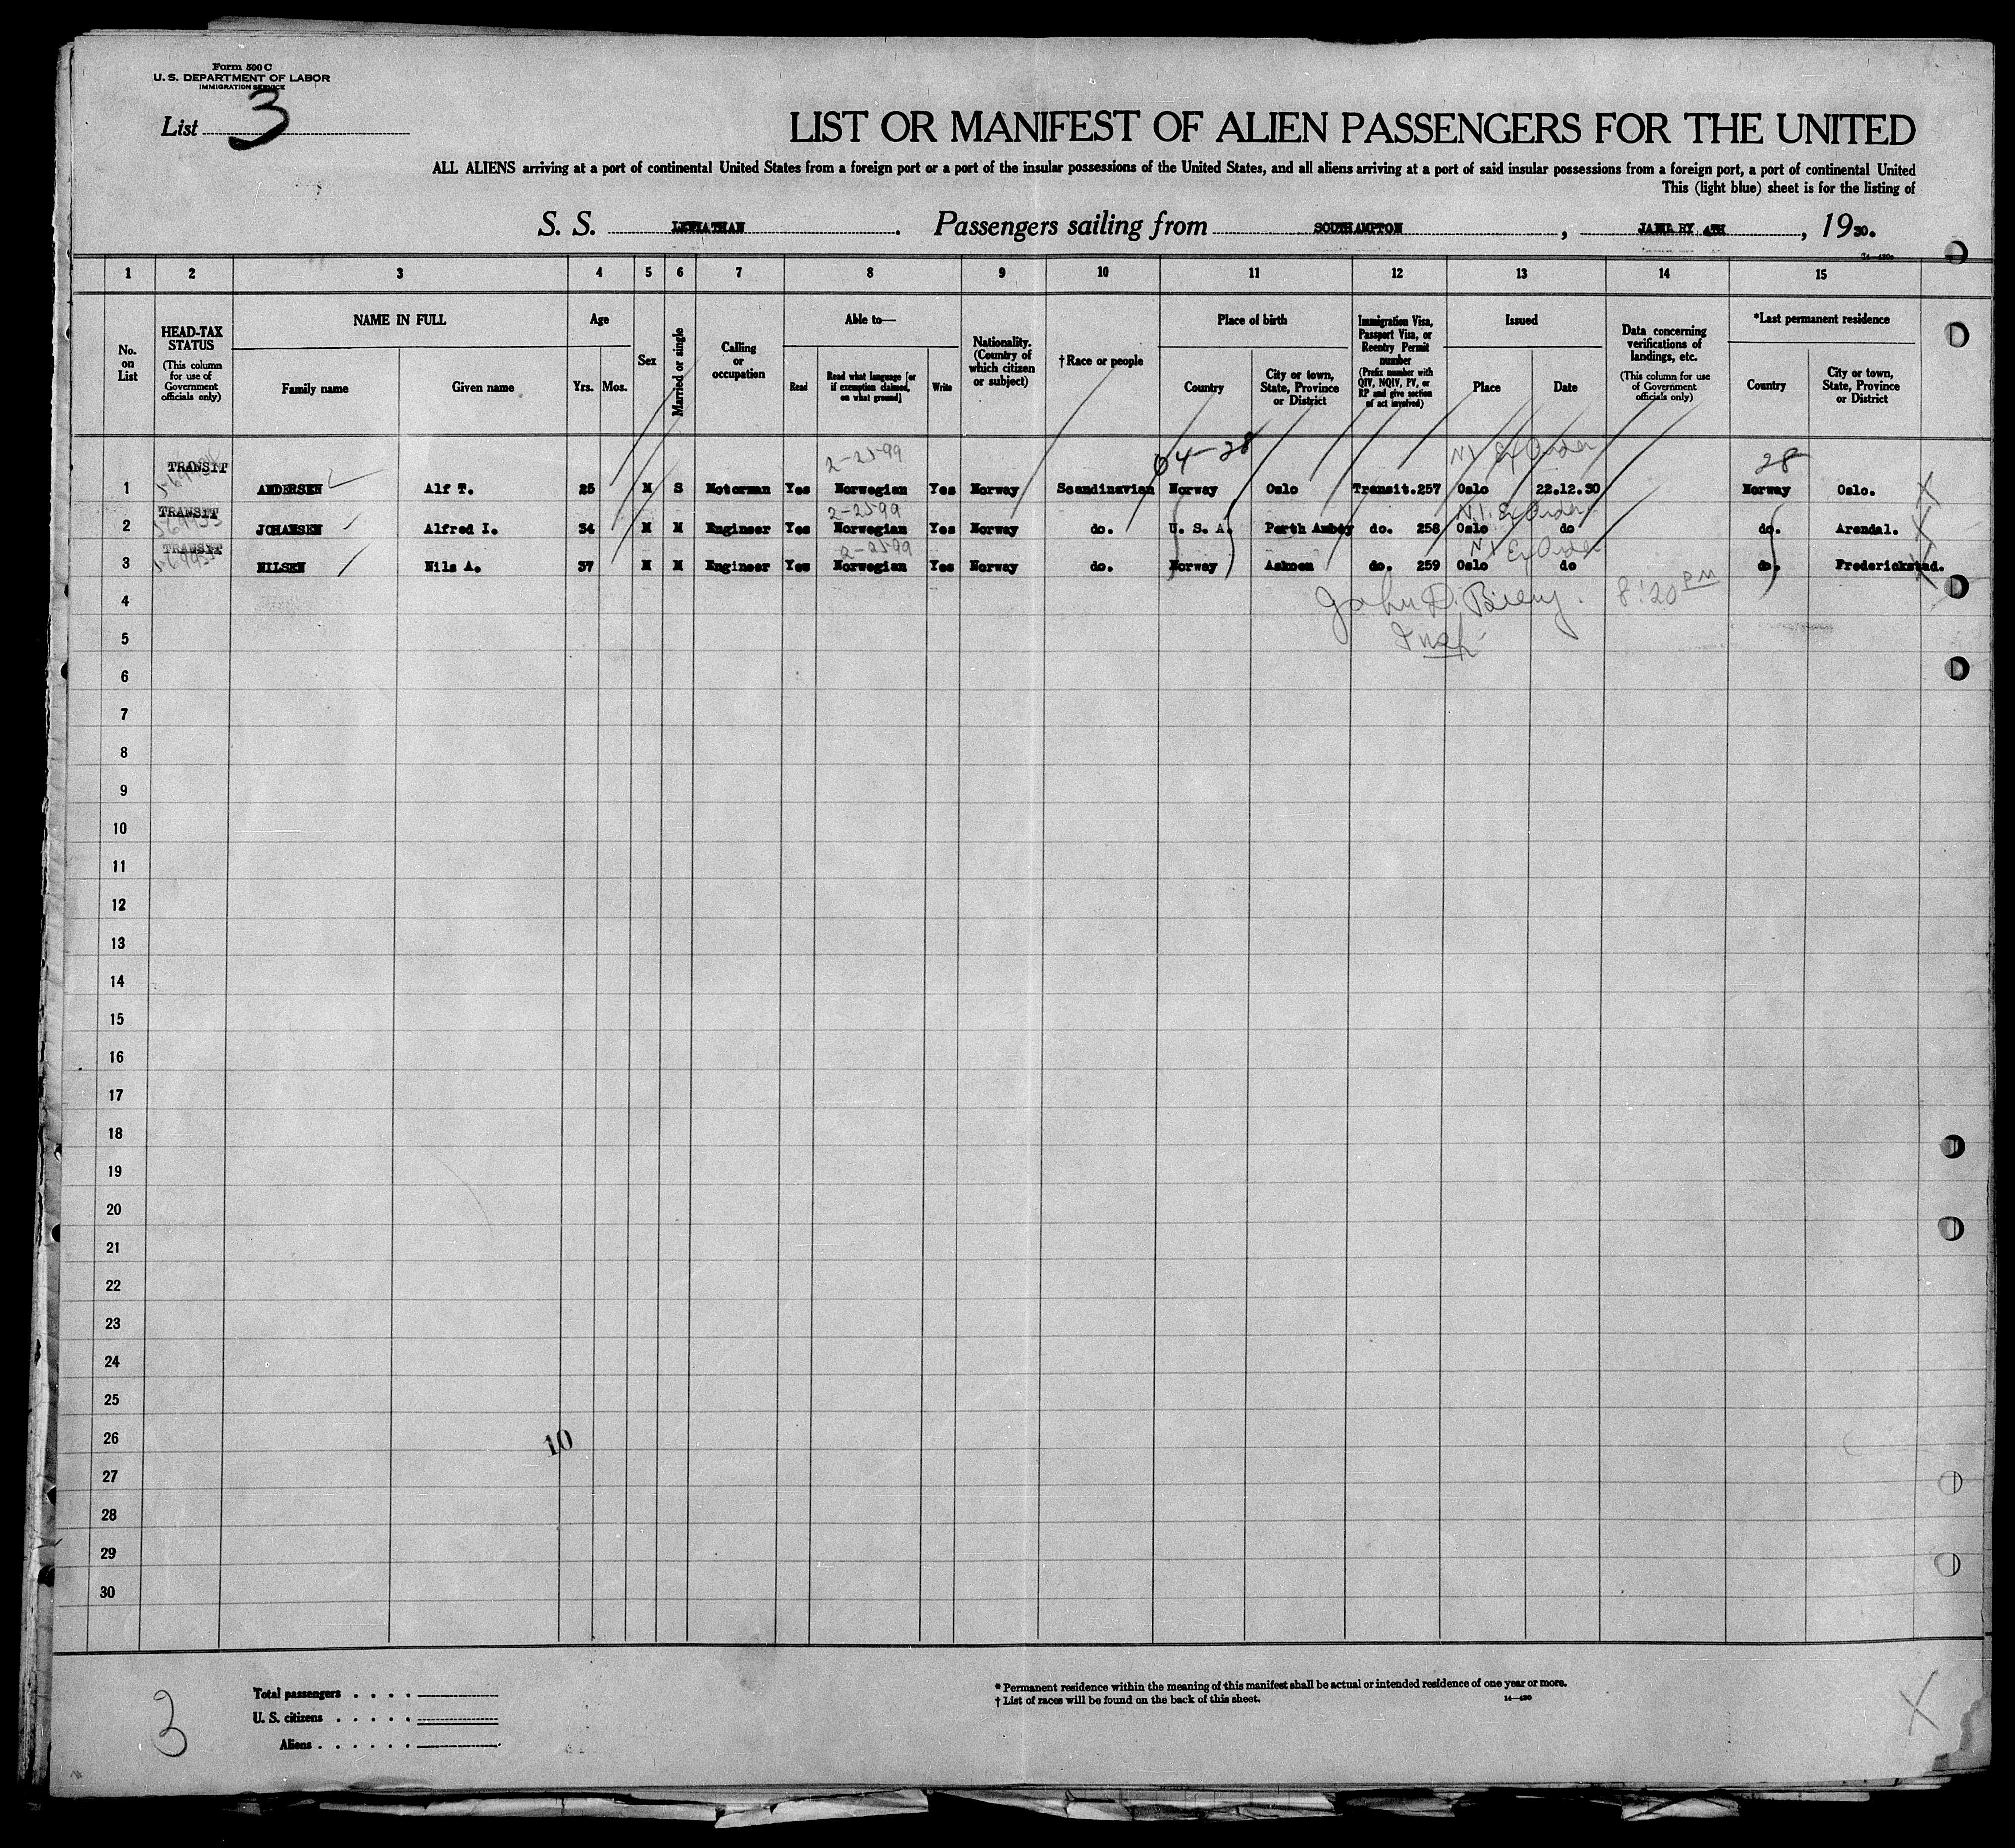 Form 500 C
U. S. DEPARTMENT OF LABOR
IMMIGRATION SERVICE
List 3
LIST OR MANIFEST OF ALIEN PASSENGERS FOR THE UNITED
ALL ALIENS arriving at a port of continental United States from a foreign port or a port of the insular possessions of the United States, and all aliens arriving at a port of said insular possessions from a foreign port, a port of continental United
This (light blue) sheet is for the listing of
S. S. LEVIATHAN. Passengers sailing from SOUTHAMPTON, 4TH, 1930.
14—430
1 2 3 4 5 6 7 8 9 10 11 12 13 14 15
No. on List
HEAD-TAX STATUS (This column for use of Government officials only)
NAME IN FULL Family name Given name
Age Yrs. Mos.
Sex
Married or single
Calling or occupation
Able to— Read Read what language [or if exemption claimed, on what ground] Write
Nationality. (Country of which citizen or subject)
†Race or people
Place of birth Country City or town, State, Province or District
Immigration Visa, Passport Visa, or Reentry Permit number (Prefix number with QIV, NQIV, PV, or RP and give section of act involved)
Issued Place Date
Data concerning verifications of landings, etc. (This column for use of Government officials only)
*Last permanent residence Country City or town, State, Province or District
2-25-99 04-28 N.I. Ex Order 28
1 TRANSIT ANDERSEN Alf T. 25 M S Motorman Yes Norwegian Yes Norway Scandinavian Norway Oslo Transit.257 Oslo 22.12.30 Norway Oslo. X
2-25-99 N.I. Ex Order
2 TRANSIT JOHANSEN Alfred I. 34 M M Engineer Yes Norwegian Yes Norway do. U. S. A. Perth Amboy do. 258 Oslo do do. Arendal. X
2-25-99 N.I. Ex Order
3 TRANSIT NILSEN Nils A. 37 M M Engineer Yes Norwegian Yes Norway do. Norway Askoen do. 259 Oslo do do. Frederickstad. X
4 John D. 8:20 PM
5 Insp.
6
7
8
9
10
11
12
13
14
15
16
17
18
19
20
21
22
23
24
25
26
10
27
28
29
30
3
Total passengers . . . .
U. S. citizens . . . . .
Aliens . . . . . .
* Permanent residence within the meaning of this manifest shall be actual or intended residence of one year or more.
† List of races will be found on the back of this sheet. 14—430
X